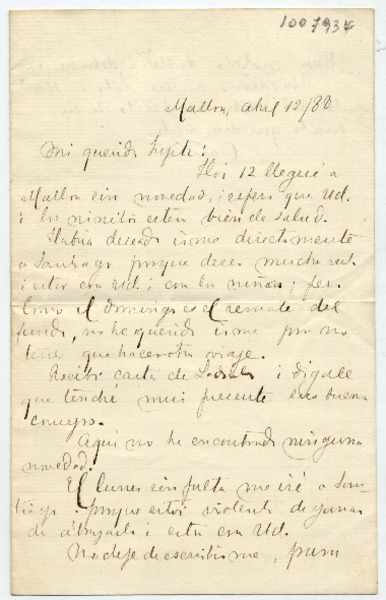 1007934
Malloa, abril 12/88
Mi querida Lifita:
Hoi 12 llegué a
Malloa sin novedad, i espero que Ud.
i los niñitos esten bien de salud.
Habria deseado irme directamente
a Santiago porque deseo mucho ver
i estar con Ud. i con los niños; pero
como el domingo es el remate del
fundo, no he querido irme por no
tener que hacer otro viaje.
Recibí carta de i digale
que tendré mui presente su buen
consejo.
Aqui no he encontrado ninguna
novedad.
El lunes sin falta me iré a San-
tiago porque estoi violento de ganas
de abrazarla i estar con Ud.
No deje de escribirme, pues